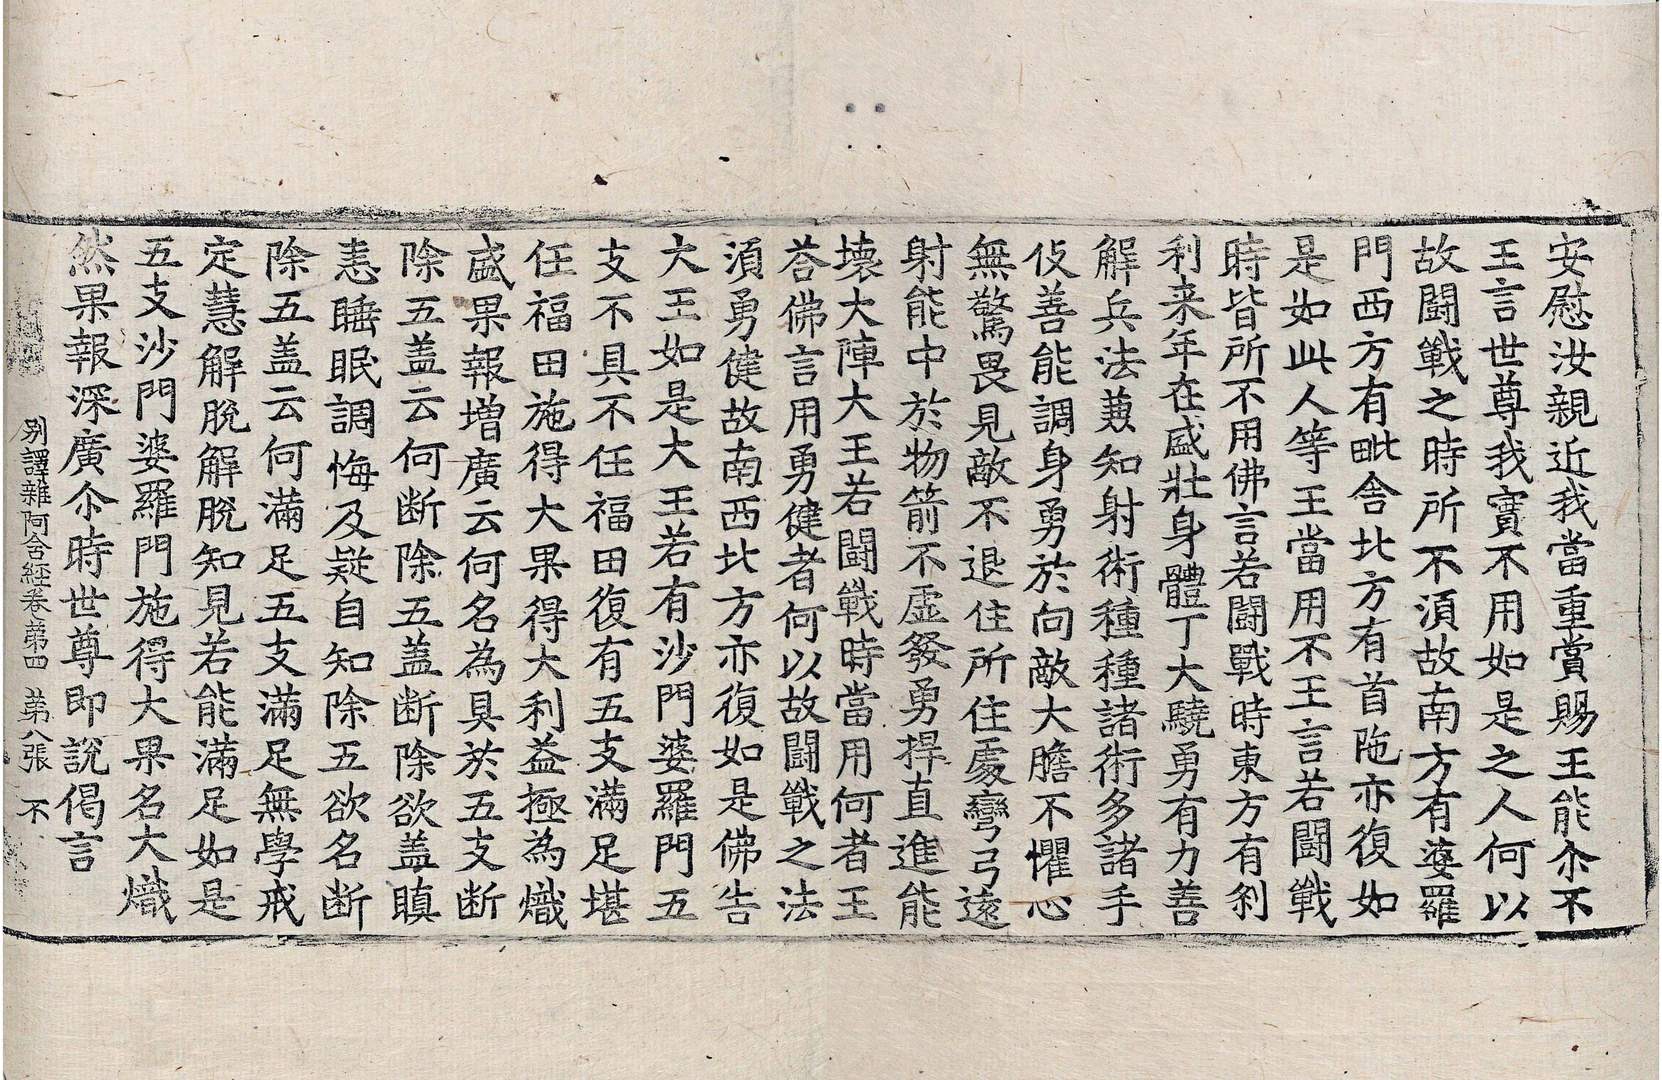 安慰汝親近我當重賞賜王能尒不
王言世尊我實不用如是之人何以
故鬪戰之時所不須故南方有婆羅
門西方有毗舍北方有首陁亦復如
是如此人等王當用不王言若鬪戰
時皆所不用佛言若鬪戰時東方有刹
利来年在盛壯身體丁大驍勇有力善
解兵法兼知射術種種諸術多諸手
伎善能調身勇於向敵大膽不懼心
無驚畏見敵不退住所住處彎弓遠
射能中於物箭不虛發勇捍直進能
壊大陣大王若鬪戰時當用何者王
荅佛言用勇健者何以故鬪戰之法
須勇健故南西北方亦復如是佛告
大王如是大王若有沙門婆羅門五
支不具不任福田復有五支滿足堪
任福田施得大果得大利益極為熾
盛果報增廣云何名為具於五支断
除五盖云何断除五盖断除欲盖瞋
恚睡眠調悔及疑自知除五欲名断
除五盖云何滿足五支滿足無學戒
定慧解脫解脫知見若能滿足如是
五支沙門婆羅門施得大果名大熾
然果報深廣尒時世尊即說偈言
別譯雜阿含經卷苐四 苐八張 不